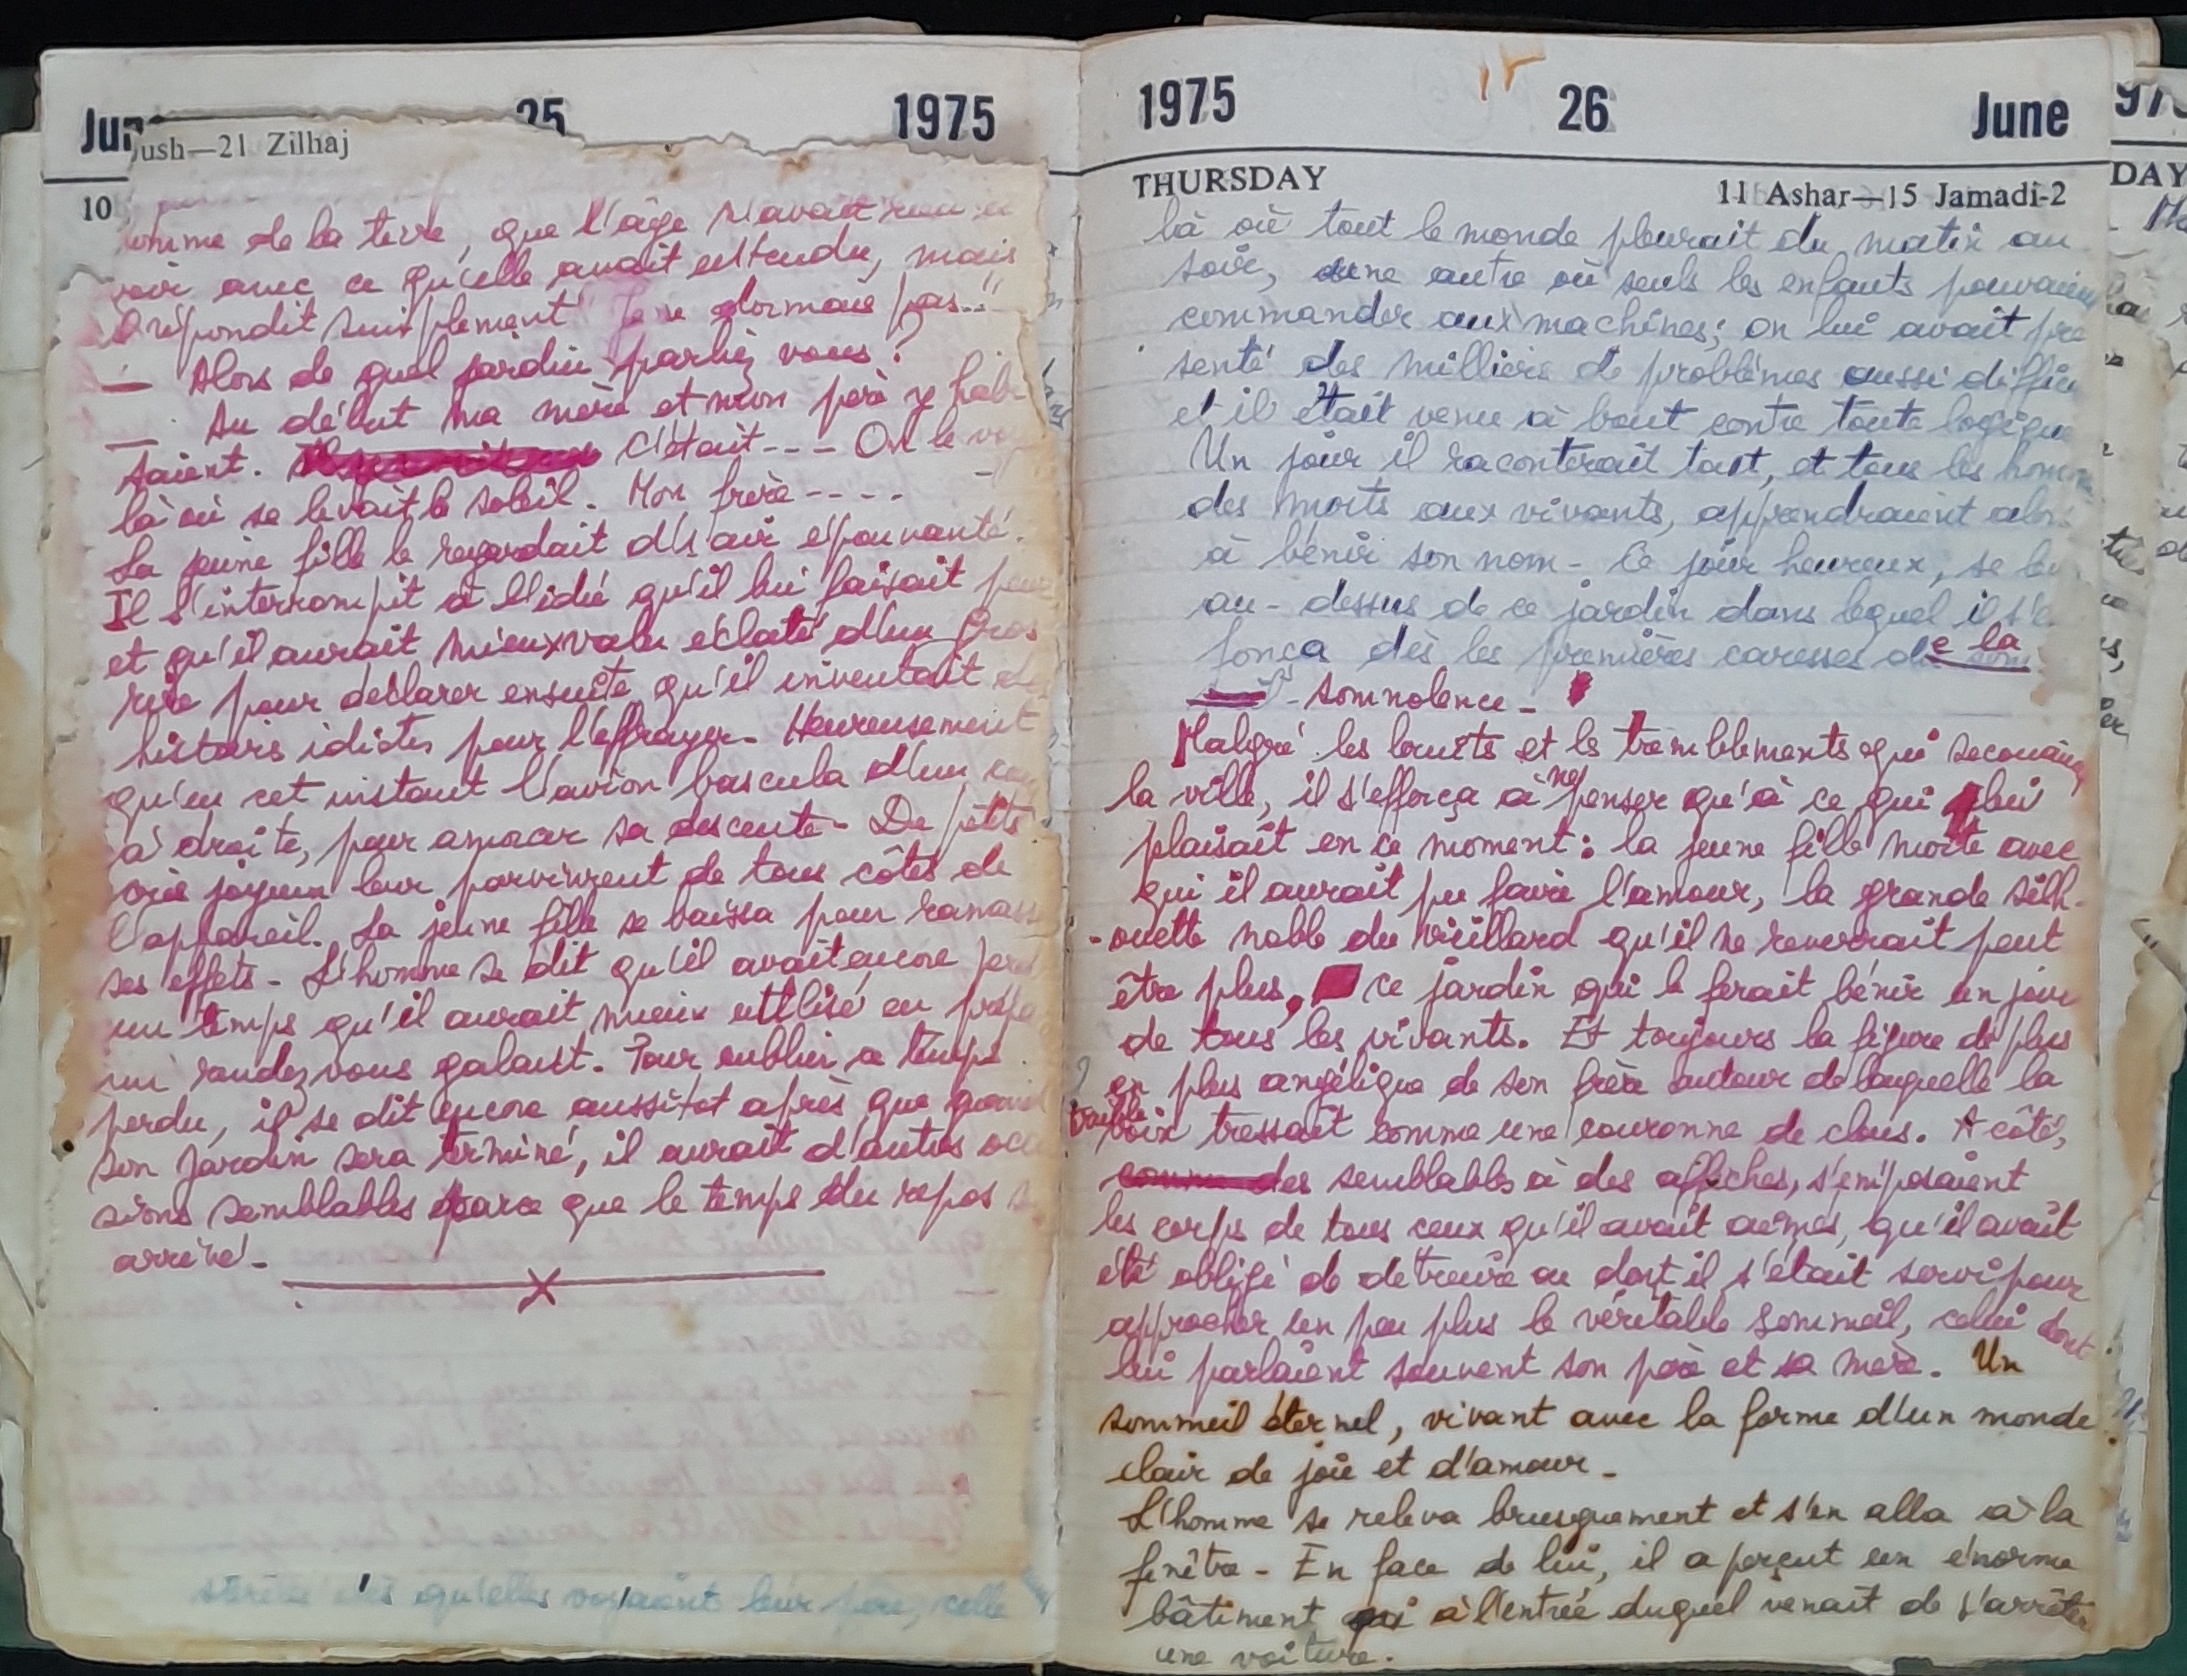 June 25 1975
ush—21 Zilhaj
10
homme de la terre, que l'âge n'avait rien à
voir avec ce qu'elle avait entendu, mais
répondit suimplement "Je ne dormais pas.."
— Alors de quel jardin parliez vous ?
— Au début ma mère et mon père y habi-
taient. C'était---- On le
là où se levait le soleil. Mon frère ----
La jeune fille le regardait d'1 air épouvanté.
Il s'interrompit à l'idée qu'il lui faisait peur
et qu'il aurait mieux valu éclaté d'un gros
rire pour déclarer ensuite qu'il inventait des
histoires idiotes pour l'effrayer. Heureusement
qu'en cet instant l'avion bascula d'un
à droite, pour amorcer sa descente - De petits
cris joyeux leur parvinrent de tous côtés de
l'appareil. La jeune fille se baissa pour ramasser
ses effets - L'homme se dit qu'il avait encore perdu
un temps qu'il aurait mieux utilisé en
un rendez vous galant. Pour oublier ce temps
perdu, il se dit encore aussitôt après que quand
son jardin sera terminé, il aurait d'autres occa
sions semblables parce que le temps du repos
arrivé -
qu'elles voyaient leur père, celle
1975 26 June
THURSDAY 11 Ashar—15 Jamadi-2
là où tout le monde pleurait du matin au
soir, une autre où seuls les enfants pouvaient
commander aux machines; on lui avait pré
senté des milliers de problèmes aussi
et il était venu à bout contre toute logique
Un jour il raconterait tout, et tous les hommes
des morts aux vivants, apprendraient alors
à bénir son nom - Ce jour heureux, se
au-dessus de ce jardin dans lequel il s'en
fonça dès les premières caresses de la
- somnolence -
Malgré les bruits et les tremblements qui secouaient
la ville, il s'efforça à ne penser qu'à ce qui lui
plaisait en ce moment : la jeune fille morte avec
qui il aurait pu faire l'amour, la grande silh-
-ouette noble du vieillard qu'il ne reverrait peut
être plus, ce jardin qui le ferait bénir un jour
de tous les vivants. Et toujours la figure de plus
en plus angélique de son frère autour de laquelle la
voix tressait comme une couronne de clous. A côté,
semblables à des affiches, s'emposaient
les corps de tous ceux qu'il avait aimés, qu'il avait
été obligé de détruire ou dont il s'était servi pour
approcher un peu plus le véritable sommeil, celui dont
lui parlaient souvent son père et sa mère. Un
sommeil éternel, vivant avec la forme d'un monde
clair de joie et d'amour -
L'homme se releva brusquement et s'en alla à la
fenêtre - En face de lui, il aperçut un énorme
bâtiment à l'entrée duquel venait de s'arrêter
une voiture.